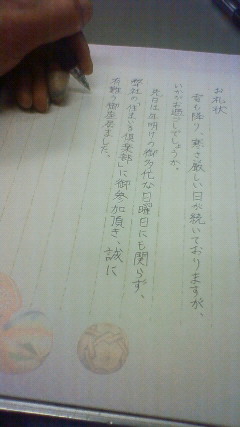 お礼状
雪も降り、寒さ厳しい日が続いておりますが、
いかがお過ごしでしょうか。
先日は年明けの御多忙な日曜日にも関らず、
弊社の「住まいる倶楽部」に御参加頂き、誠に
有難う御座居ました。